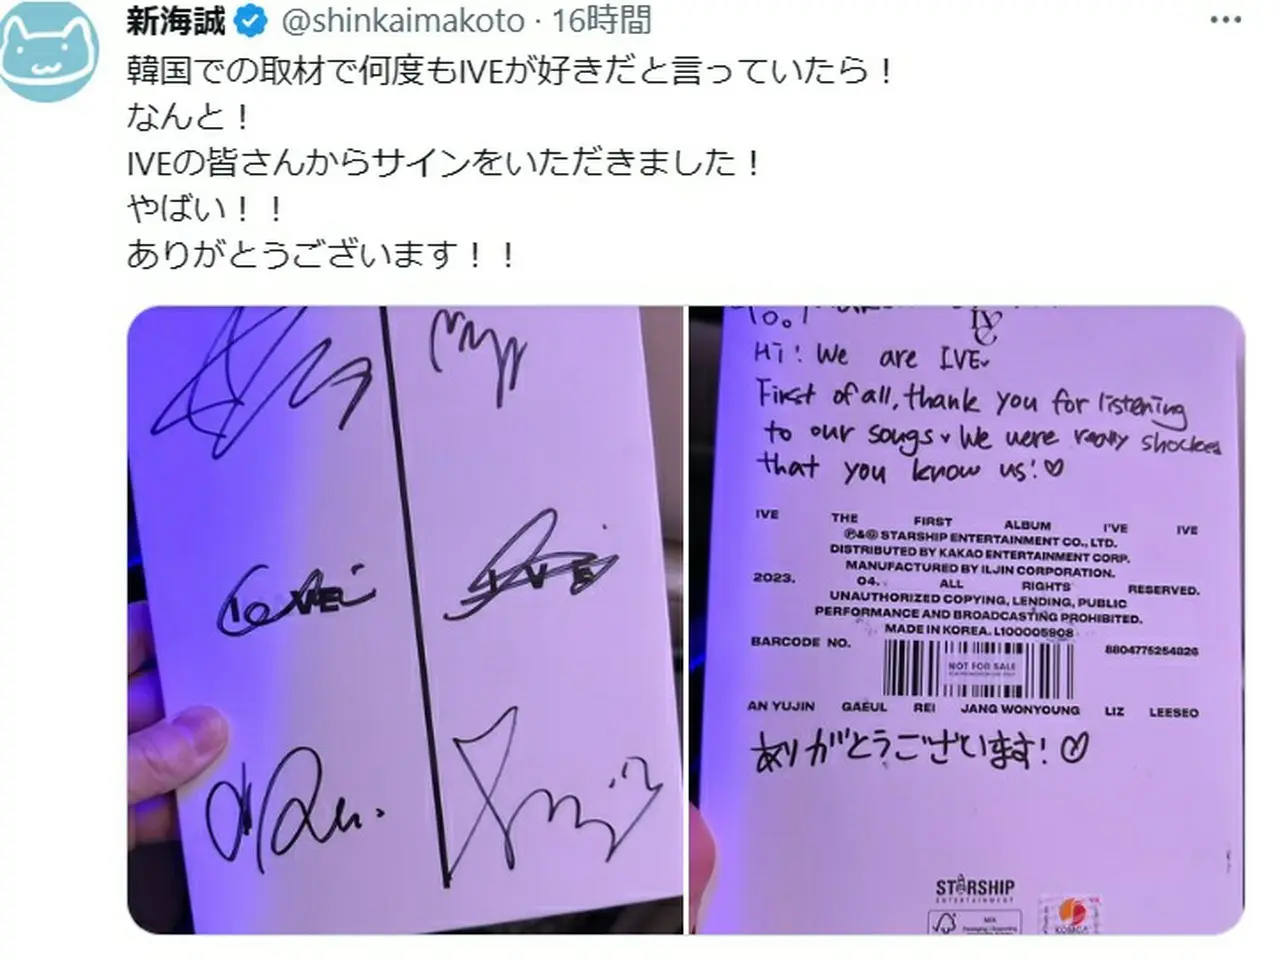 新海誠 @shinkaimakoto · 16時間
韓国での取材で何度もIVEが好きだと言っていたら！
なんと！
IVEの皆さんからサインをいただきました！
やばい！！
ありがとうございます！！
IVE
IVE
To.
IVE
Hi! We are IVE
First of all, thank you for listening
to our songs We were really shocked
that you know us! ♡
IVE THE FIRST ALBUM I'VE IVE
Ⓟ&© STARSHIP ENTERTAINMENT CO., LTD.
DISTRIBUTED BY KAKAO ENTERTAINMENT CORP.
MANUFACTURED BY ILJIN CORPORATION.
2023. 04. ALL RIGHTS RESERVED.
UNAUTHORIZED COPYING, LENDING, PUBLIC
PERFORMANCE AND BROADCASTING PROHIBITED.
MADE IN KOREA. L100005908
BARCODE NO. 8804775254826
NOT FOR SALE
AN YUJIN GAEUL REI JANG WONYOUNG LIZ LEESEO
ありがとうございます! ♡
STARSHIP
ENTERTAINMENT
MIX
KOMCA